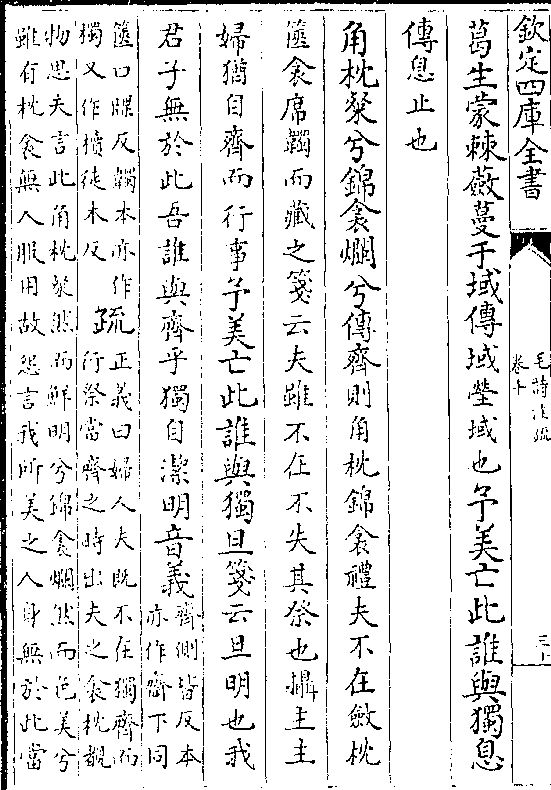 欽定四庫全書
毛詩注疏
卷十
三十
葛生蒙棘蘞蔓于域傳域塋域也予美亡此誰與獨息
傳息止也
角枕粲兮錦衾爛兮傳齊則角枕錦衾禮夫不在斂枕
篋衾席韣而藏之箋云夫雖不在不失其祭也攝主主
婦猶自齊而行事予美亡此誰與獨旦箋云旦明也我
君子無於此吾誰與齊乎獨自潔明音義齊側皆反本
亦作齋下同
篋口牒反韣本亦作
獨又作櫝徒木反
疏
正義曰婦人夫既不在獨齊而
行祭當齊之時出夫之衾枕覩
物思夫言此角枕粲然而鮮明兮錦衾爛然而色美兮
雖有枕衾無人服用故怨言我所美之人身無於此當